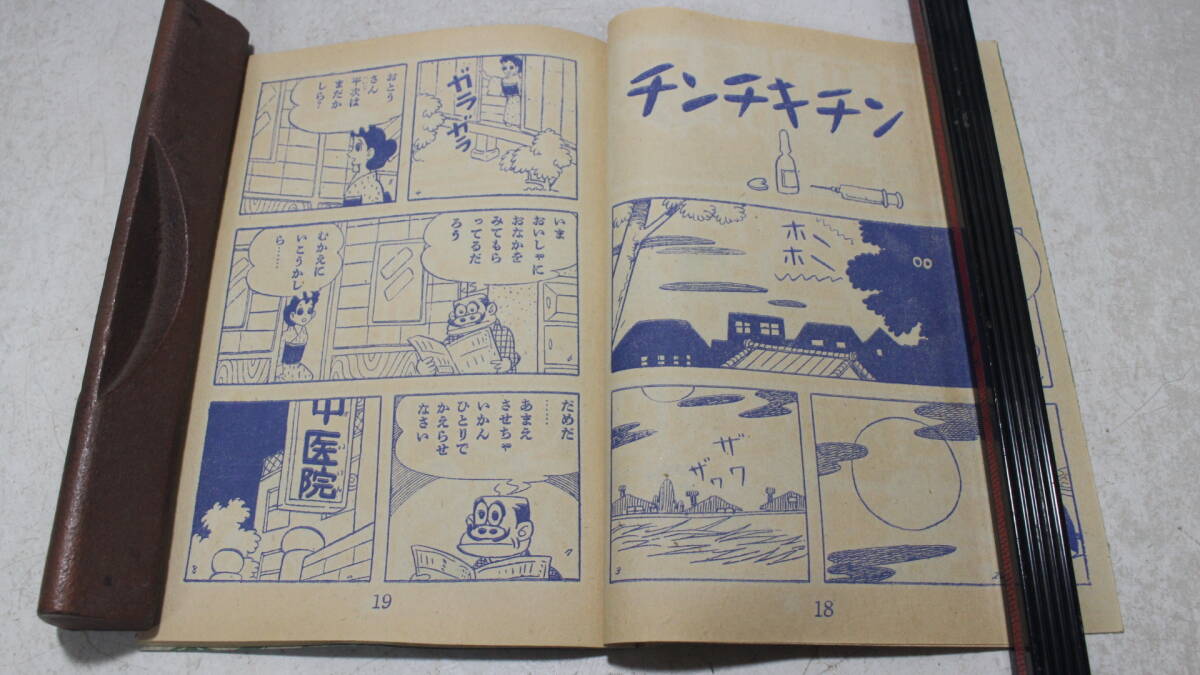 チンチキチン
ホーホー
ザワザワ
3
18
ガラガラ
おとう
さん
平次は
まだか
しら?
いま
おいしゃに
おなかを
みてもら
ってるだ
ろう
むかえに
いこうかし
ら……
だめだ
……
あまえ
させちゃ
いかん
ひとりで
かえらせ
なさい
7
中医院
8
19